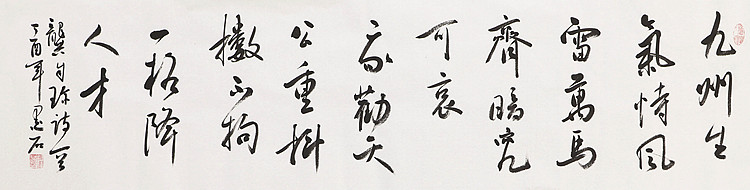 九州生
氣恃風
雷萬馬
齊喑究
可哀
我勸天
公重抖
擻不拘
一格降
人才
龔自珍詩一首
丁酉年 墨石